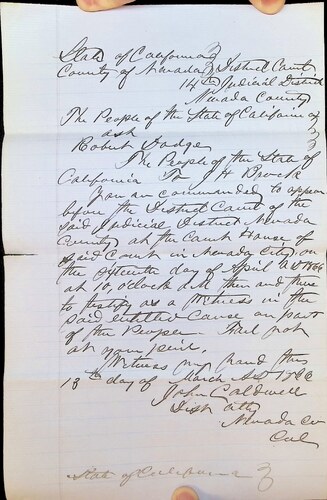 State of California }
County of Nevada } District Court
14th Judicial District
Nevada County
The People of the State of California }
Robert Dodge }
The People of the State of
California To J H
You are commanded to appear
before the District Court of the
said Judicial District Nevada
County at the Court House of
said Court in Nevada City on
the fifteenth day of April A.D. 1866
at 10, o'clock A.M. then and there
to testify as a witness in the
said entitled cause on part
of the People Fail not
at your peril.
Witness my hand this
13th day of March A.D. 1866
John Caldwell
Dist Atty
Nevada Co
Cal
State of California }